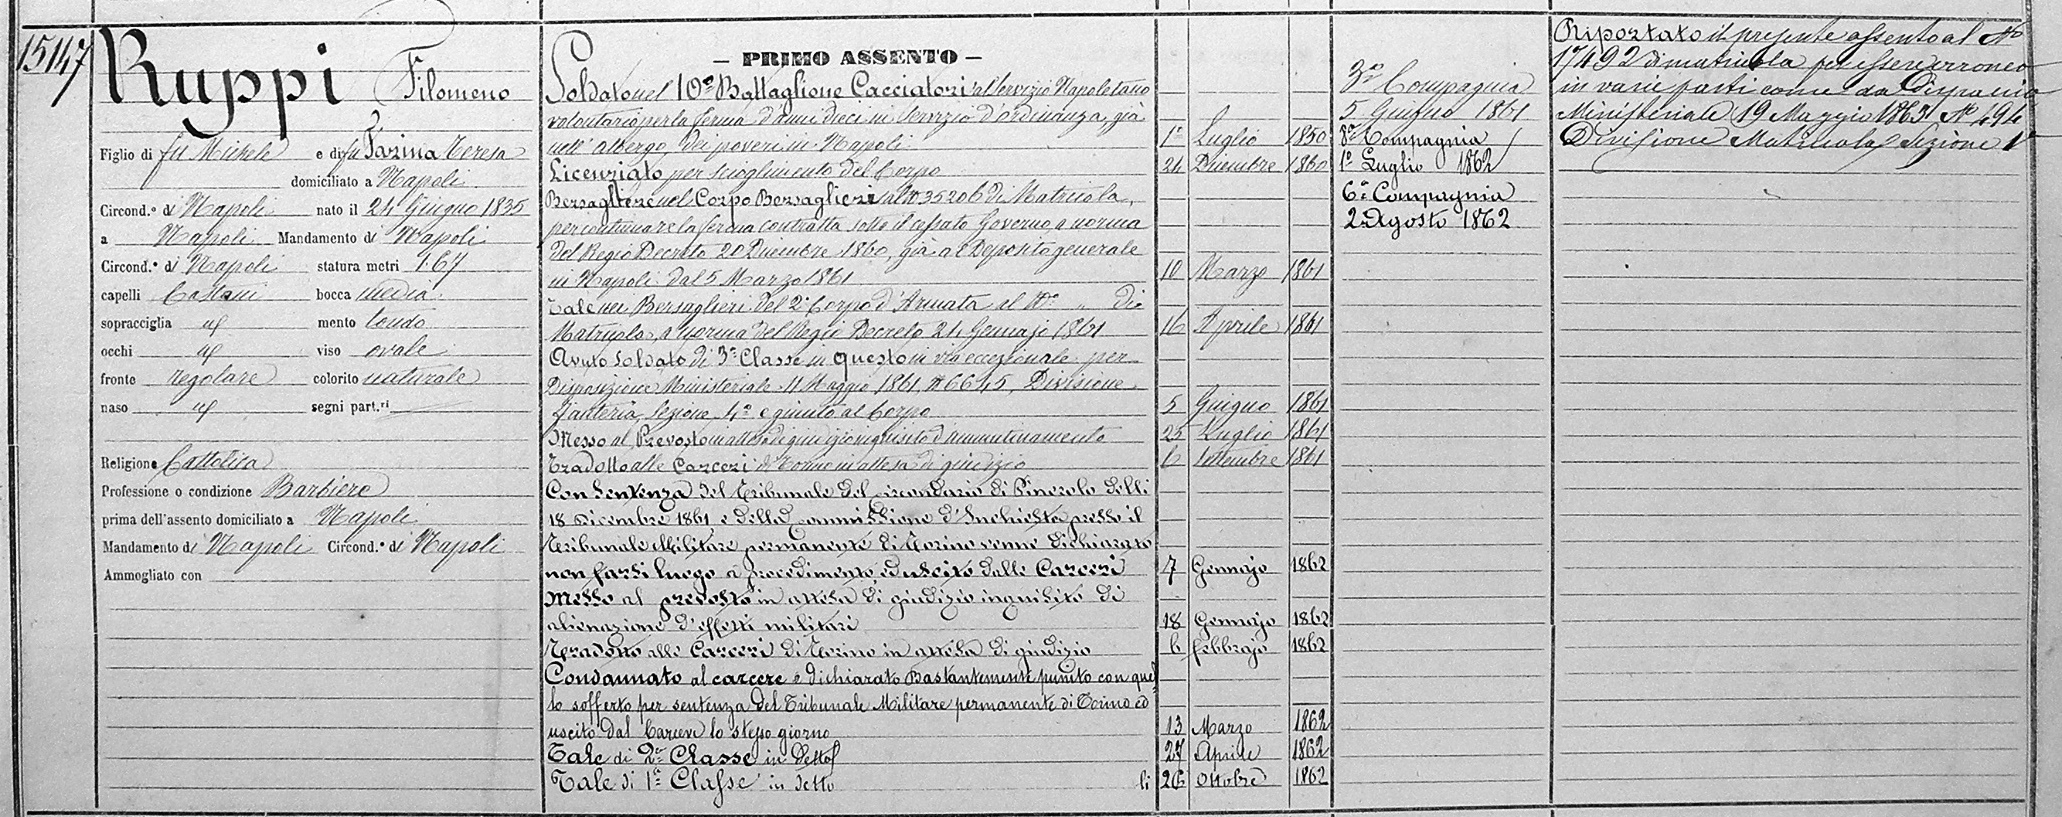 15147
Ruppi
Filomeno
Figlio di fu Michele e di fu Farina Teresa
domiciliato a Napoli
Circond.º di Napoli nato il 24 Giugno 1835
a Napoli Mandamento di Napoli
Circond.º di Napoli statura metri 1.67
capelli Castani bocca media
sopracciglia id mento tondo
occhi id viso ovale
fronte regolare colorito naturale
naso id segni part.ri
Religione Cattolica
Professione o condizione Barbiere
prima dell'assento domiciliato a Napoli
Mandamento di Napoli Circond.º di Napoli
Ammogliato con
— PRIMO ASSENTO —
Soldato nel 10º Battaglione Cacciatori al servizio Napoletano
volontario per la ferma d'anni dieci in servizio d'ordinanza, già
nell'albergo dei poveri in Napoli 1º Luglio 1850
Licenziato per scioglimento del Corpo 24 Dicembre 1860
Bersagliere nel Corpo Bersaglieri al Nº 35206 di Matricola,
per continuare la ferma contratta sotto il cessato Governo a norma
del Regio Decreto 20 Dicembre 1860, già al Deposito generale
in Napoli dal 5 Marzo 1861 10 Marzo 1861
Tale nei Bersaglieri del 2º Corpo d'Armata al Nº " di
Matricola, a norma del Regio Decreto 24 Gennajo 1861 16 Aprile 1861
Avuto Soldato di 3ª Classe in questo in via eccezionale per
Disposizione Ministeriale 11 Maggio 1861 Nº 6645, Divisione
fanteria, Sezione 4ª e giunto al Corpo 5 Giugno 1861
Messo al Prevosto in attesa di giudizio inquisito d'ammutinamento 25 Luglio 1861
Tradotto alle Carceri di Torino in attesa di giudizio 6 Settembre 1861
Con Sentenza del Tribunale del circondario di Pinerolo delli
18 Dicembre 1861 e della commissione d'Inchiesta presso il
Tribunale Militare permanente di Torino venne dichiarato
non farsi luogo a procedimento ed uscito dalle Carceri 7 Gennajo 1862
Messo al prevosto in attesa di giudizio inquisito di
alienazione d'effetti militari 18 Gennajo 1862
Tradotto alle Carceri di Torino in attesa di giudizio 6 febbrajo 1862
Condannato al carcere e dichiarato Bastantemente punito con quel
lo sofferto per sentenza del Tribunale Militare permanente di Torino ed
uscito dal Carcere lo stesso giorno 13 Marzo 1862
Tale di 2ª Classe in Detto 27 Aprile 1862
Tale di 1ª Classe in detto li 26 Ottobre 1862
3ª Compagnia
5 Giugno 1861
8ª Compagnia
1º Luglio 1862
6ª Compagnia
2 Agosto 1862
Riportato il presente assento al Nº
17492 di matricola per essere erroneo
in varie parti come da Dispaccio
Ministeriale 19 Maggio 1863 Nº 494
Divisione Matricola Sezione 1ª